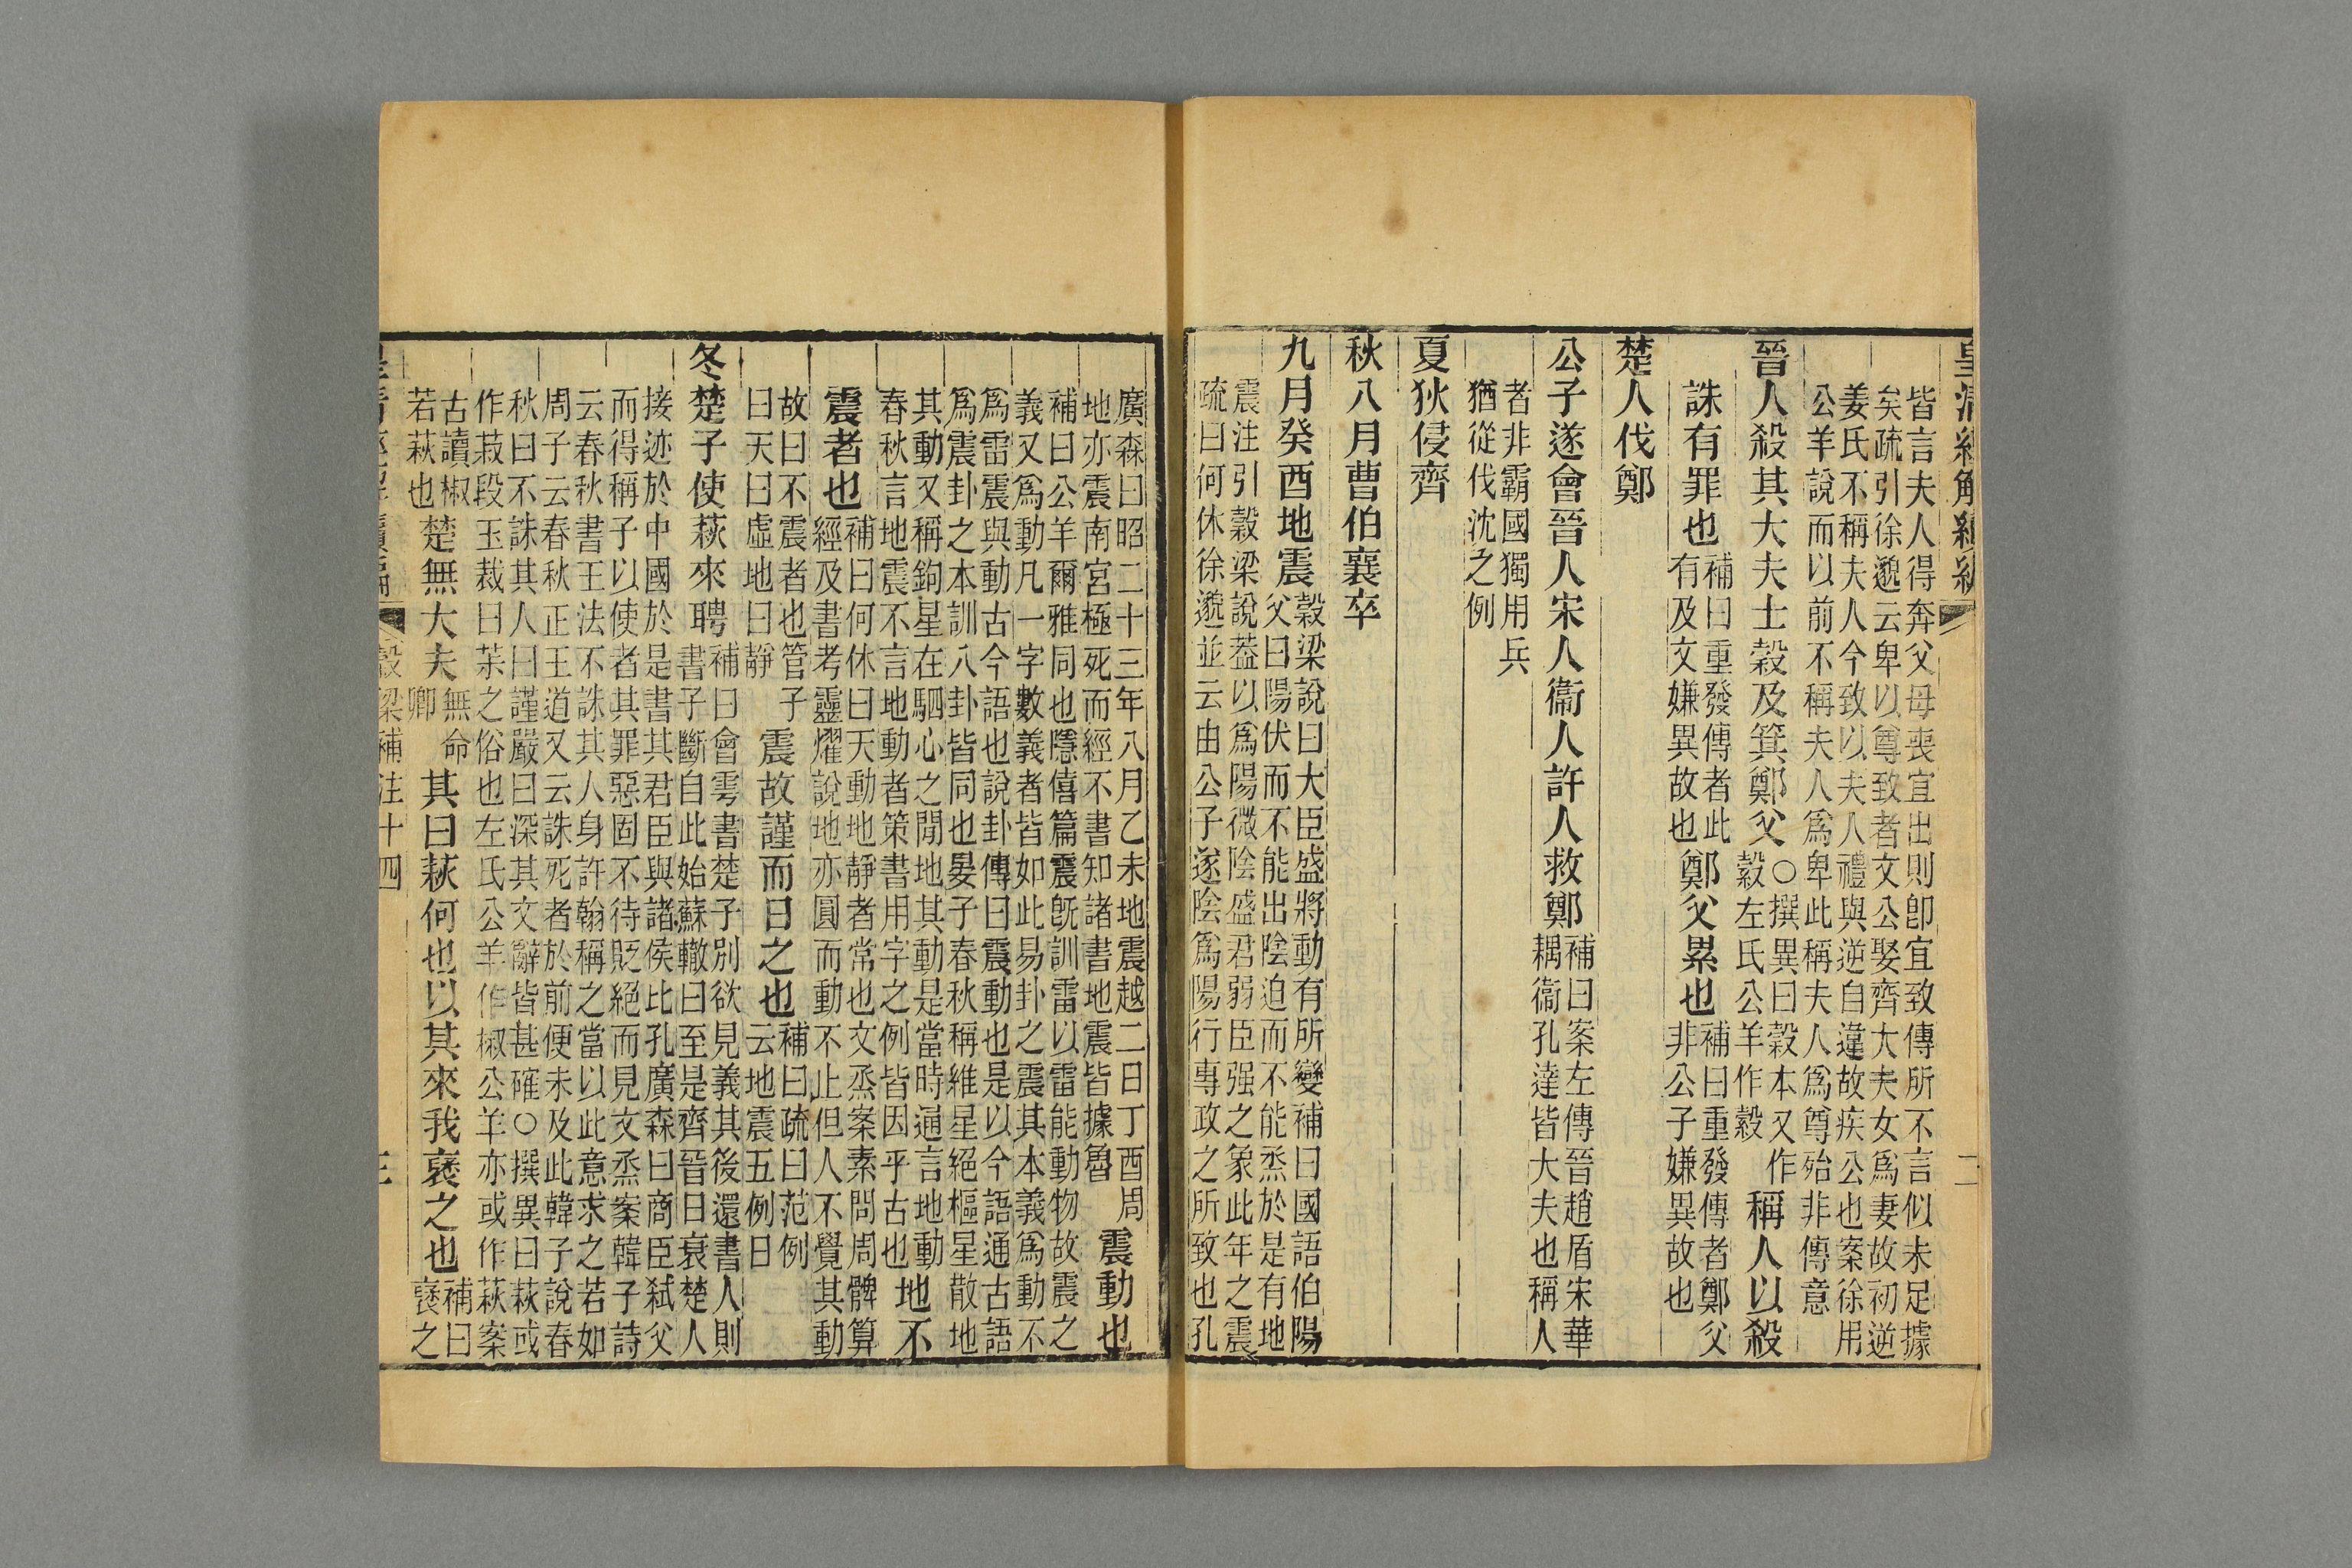 皇清經解續編
二
皆言夫人得奔父母喪宜出則卽宜致傳所不言似未足據
矣疏引徐邈云卑以尊致者文公娶齊大夫女爲妻故初逆
姜氏不稱夫人今致以夫人禮與逆自違故疾公也案徐用
公羊說而以前不稱夫人爲卑此稱夫人爲尊殆非傳意
晉人殺其大夫士縠及箕鄭父
○撰異曰縠本又作
穀左氏公羊作縠
稱人以殺
誅有罪也
補曰重發傳者此
有及文嫌異故也
鄭父累也
補曰重發傳者鄭父
非公子嫌異故也
楚人伐鄭
公子遂會晉人宋人衞人許人救鄭
補曰案左傳晉趙盾宋華
耦衞孔達皆大夫也稱人
者非霸國獨用兵
猶從伐沈之例
夏狄侵齊
秋八月曹伯襄卒
九月癸酉地震
穀梁說曰大臣盛將動有所變補曰國語伯陽
父曰陽伏而不能出陰迫而不能烝於是有地
震注引穀梁說葢以爲陽微陰盛君弱臣强之象此年之震
疏曰何休徐邈並云由公子遂陰爲陽行專政之所致也孔
廣森曰昭二十三年八月乙未地震越二日丁酉周
地亦震南宮極死而經不書知諸書地震皆據魯
震動也
補曰公羊爾雅同也隱僖篇震旣訓雷以雷能動物故震之
義又爲動凡一字數義者皆如此易卦之震其本義爲動不
爲雷震與動古今語也說卦傳曰震動也是以今語通古語
爲震卦之本訓八卦皆同也晏子春秋稱維星絕樞星散地
其動又稱鉤星在駟心之閒地其動是當時通言地動
春秋言地震不言地動者策書用字之例皆因乎古也
地不
震者也
補曰何休曰天動地靜者常也文烝案素問周髀算
經及書考靈燿說地亦圓而動不止但人不覺其動
故曰不震者也管子
曰天曰虛地曰靜
震故謹而日之也
補曰疏曰范例
云地震五例日
冬楚子使萩來聘
補曰會雩書楚子別欲見義其後還書人則
書子斷自此始蘇轍曰至是齊晉日衰楚人
接迹於中國於是書其君臣與諸侯比孔廣森曰商臣弑父
而得稱子以使者其罪惡固不待貶絕而見文烝案韓子詩
云春秋書王法不誅其人身許翰稱之當以此意求之若如
周子云春秋正王道又云誅死者於前便未及此韓子說春
秋曰不誅其人曰謹嚴曰深其文辭皆甚確○撰異曰萩或
作菽段玉裁曰茮之俗也左氏公羊作椒公羊亦或作萩案
古讀椒
若萩也
楚無大夫
無命
卿
其曰萩何也以其來我襃之也
補曰
襃之
皇清經解續編
穀梁補注十四
三